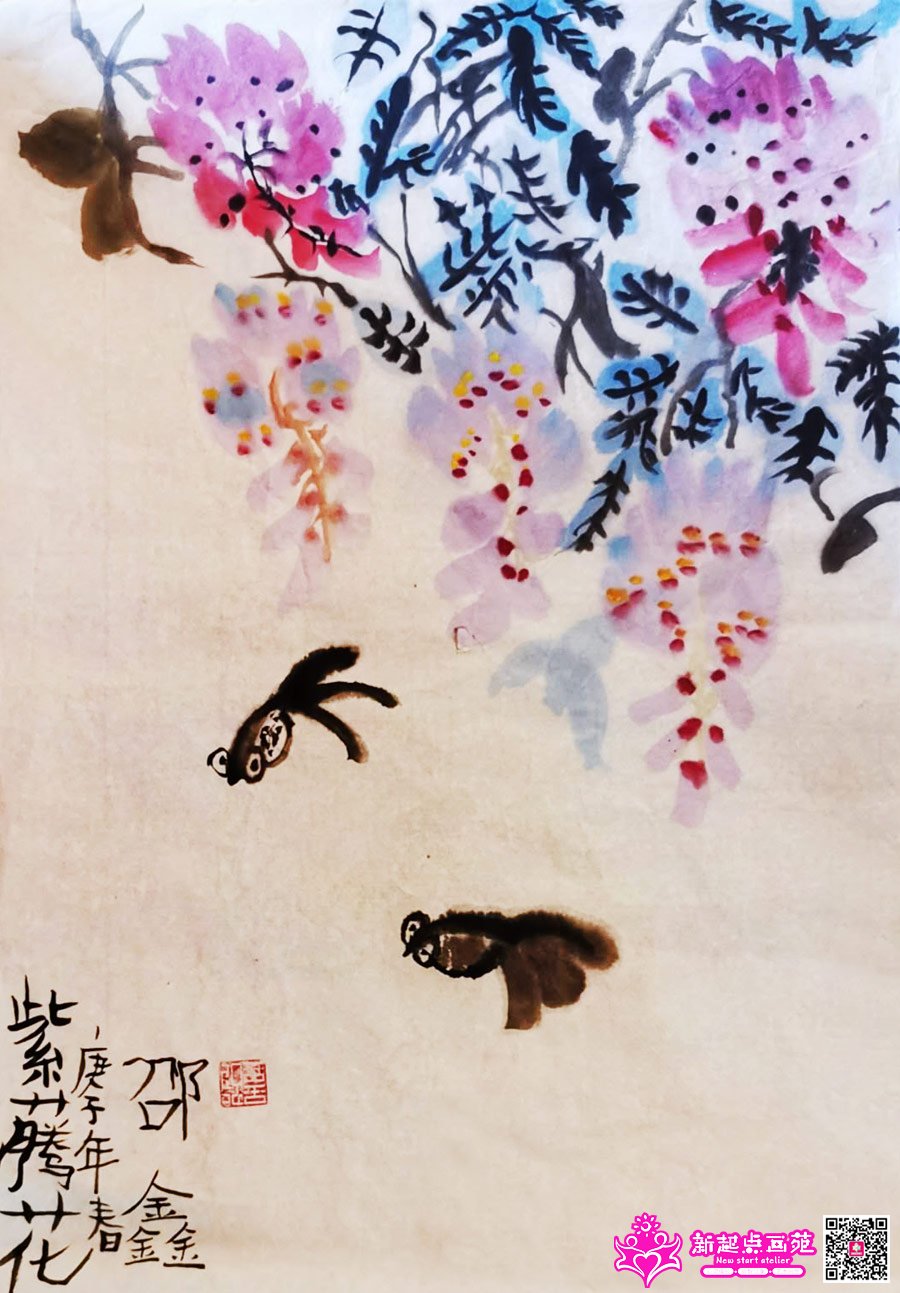 紫藤花
庚子年春
邵鑫
新起点画苑
New start atelier